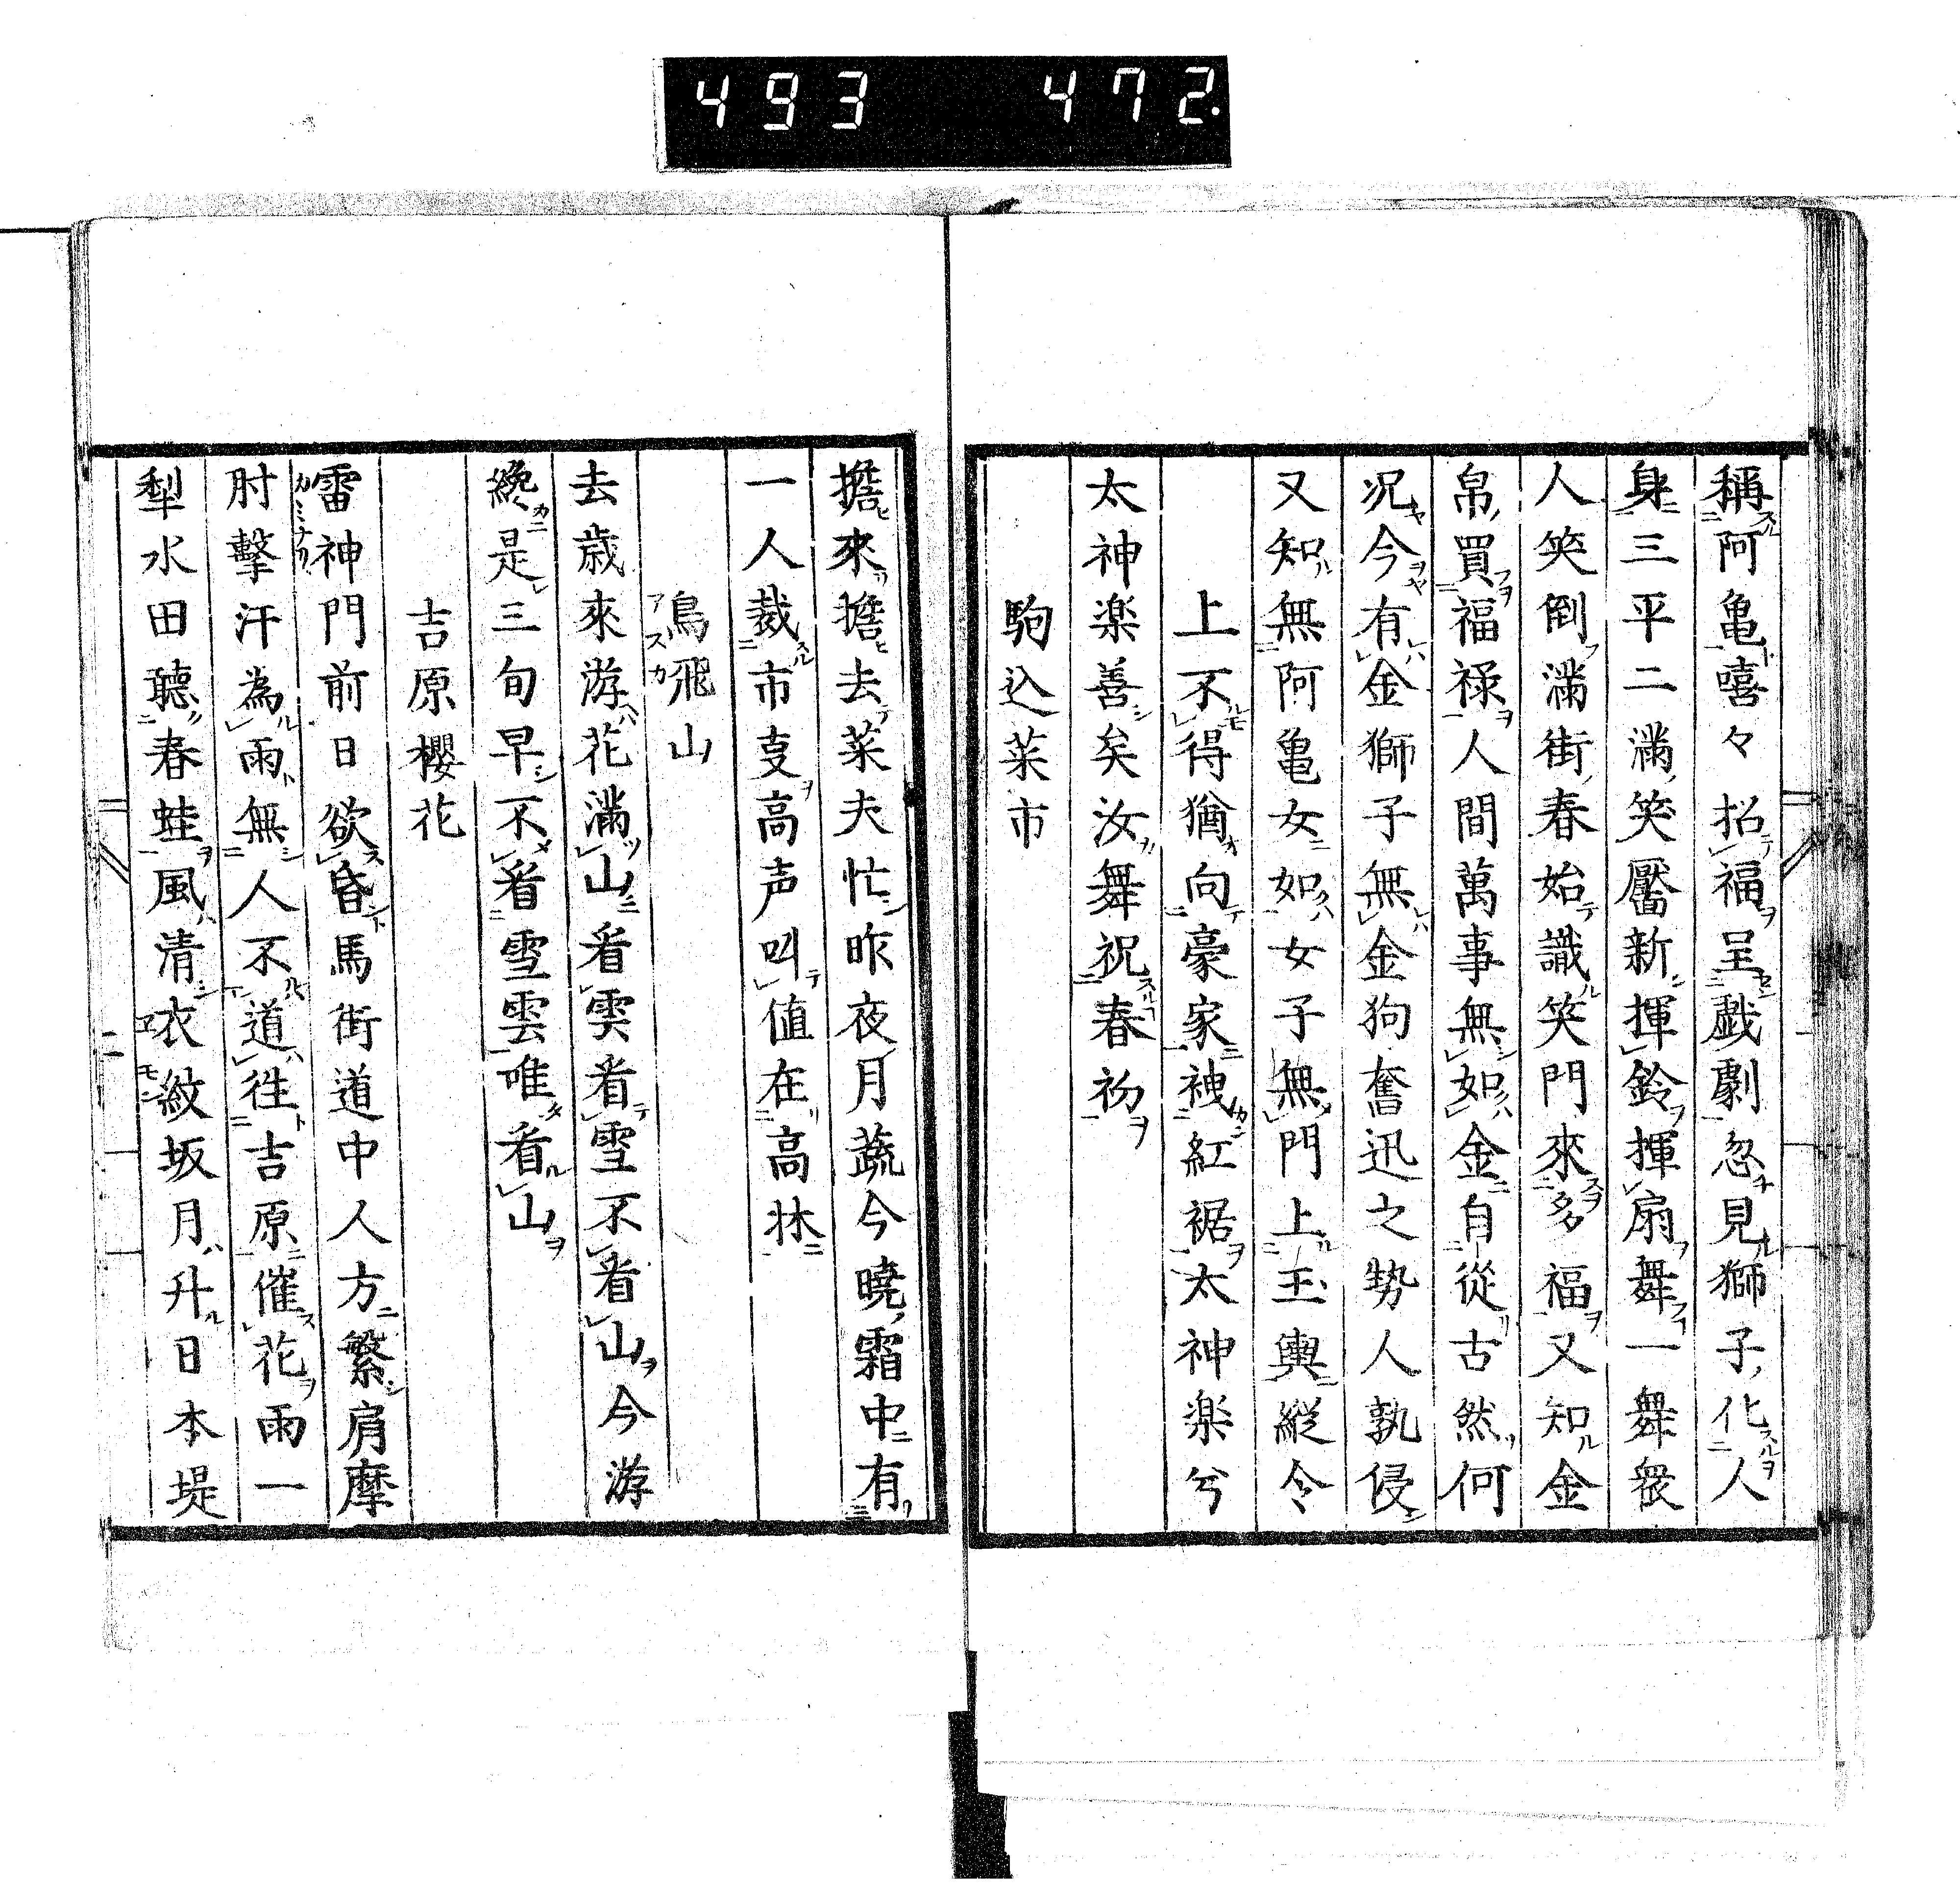 493 472.
稱阿亀嘻々招福呈戯劇忽見獅子化人
身三平二滿笑靨新揮鈴揮扇舞一舞衆
人笑倒滿街春始識笑門來多福又知金
帛買福禄人間萬事無如金自從古然何
况今有金獅子無金狗奮迅之勢人孰侵
又知無阿亀女如女子無門上玉輿縱令
上不得猶向豪家袡紅裾太神楽兮
太神楽善矣汝舞祝春初
駒込菜市
擔來擔去菜夫忙昨夜月蔬今曉霜中有
一人裁市支高声叫値在高牀
鳥飛山
去歳來游花滿山看雲看雪不看山今游
纔是三旬早不看雪雲唯看山
吉原櫻花
雷神門前日欲昏馬街道中人方繁肩摩
肘擊汗為雨無人不道徃吉原催花雨一
犁水田聽春蛙風清衣紋坂月升日本堤